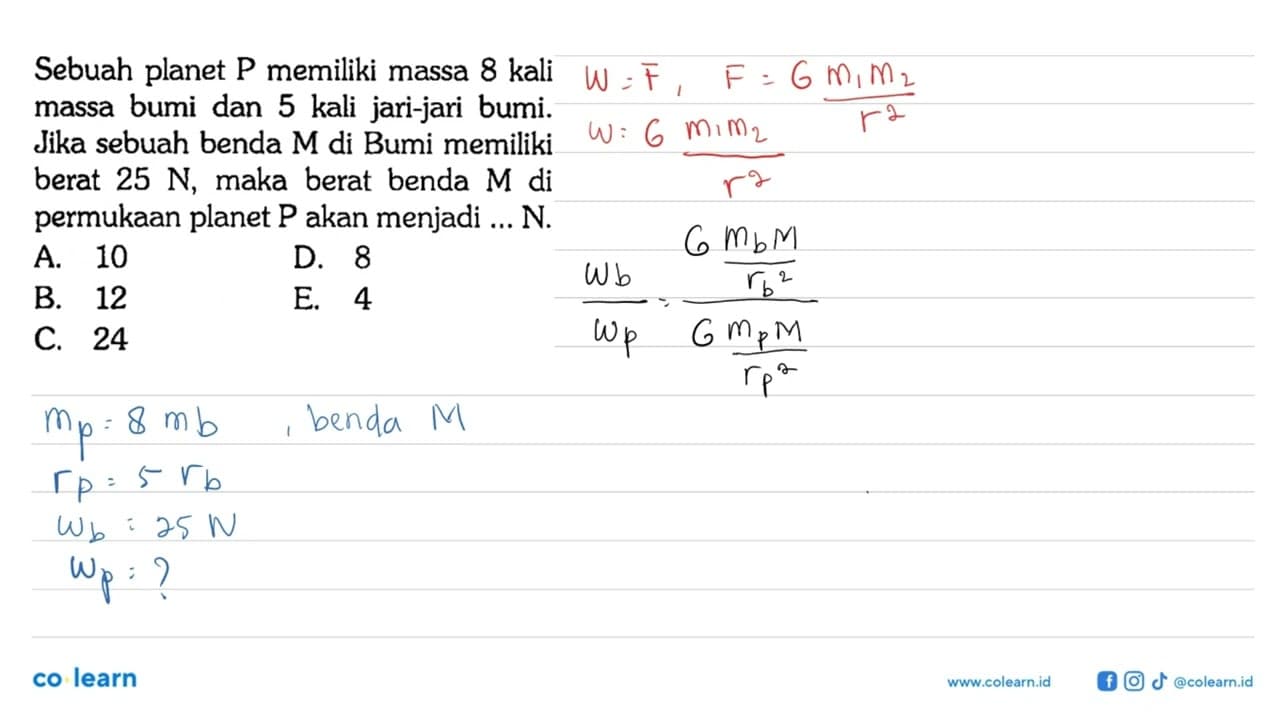 Sebuah planet P memiliki massa 8 kali
massa bumi dan 5 kali jari-jari bumi.
Jika sebuah benda M di Bumi memiliki
berat 25 N, maka berat benda M di
permukaan planet P akan menjadi ... N.
A. 10 D. 8
B. 12 E. 4
C. 24
W = F, F = G m1m2
r2
W = G m1m2
r2
Wb = G mbM
rb2
Wp G mpM
rp2
mp = 8 mb , benda M
rp = 5 rb
Wb = 25 N
Wp = ?
co learn
www.colearn.id
@colearn.id